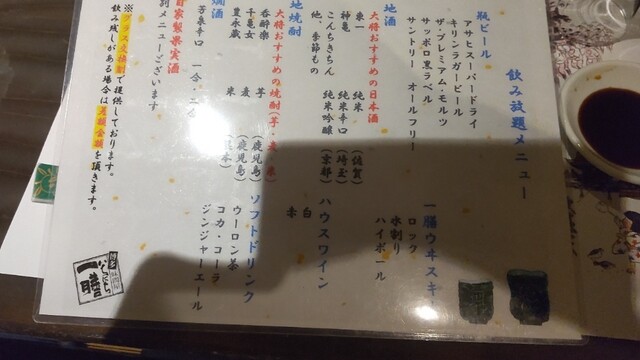 飲み放題メニュー
瓶ビール
アサヒスーパードライ
キリンラガービール
ザ・プレミアム・モルツ
サッポロ黒ラベル
サントリー オールフリー
地酒
大将おすすめの日本酒
東一 純米 (佐賀)
神亀 純米辛口 (埼玉)
こんちきちん 純米吟醸 (京都)
他、季節もの
地焼酎
大将おすすめの焼酎(芋・麦・米)
呑酔楽 芋 (鹿児島)
千亀女 麦 (鹿児島)
豊永蔵 米
芳泉辛口 一合・二合
自家製果実酒
別メニューございます
※グラス交換制で提供しております。
飲み残しがある場合は差額金額を頂きます。
一膳ウヰスキー
ロック
水割り
ハイボール
ハウスワイン
白
赤
ソフトドリンク
ウーロン茶
コカ・コーラ
ジンジャーエール